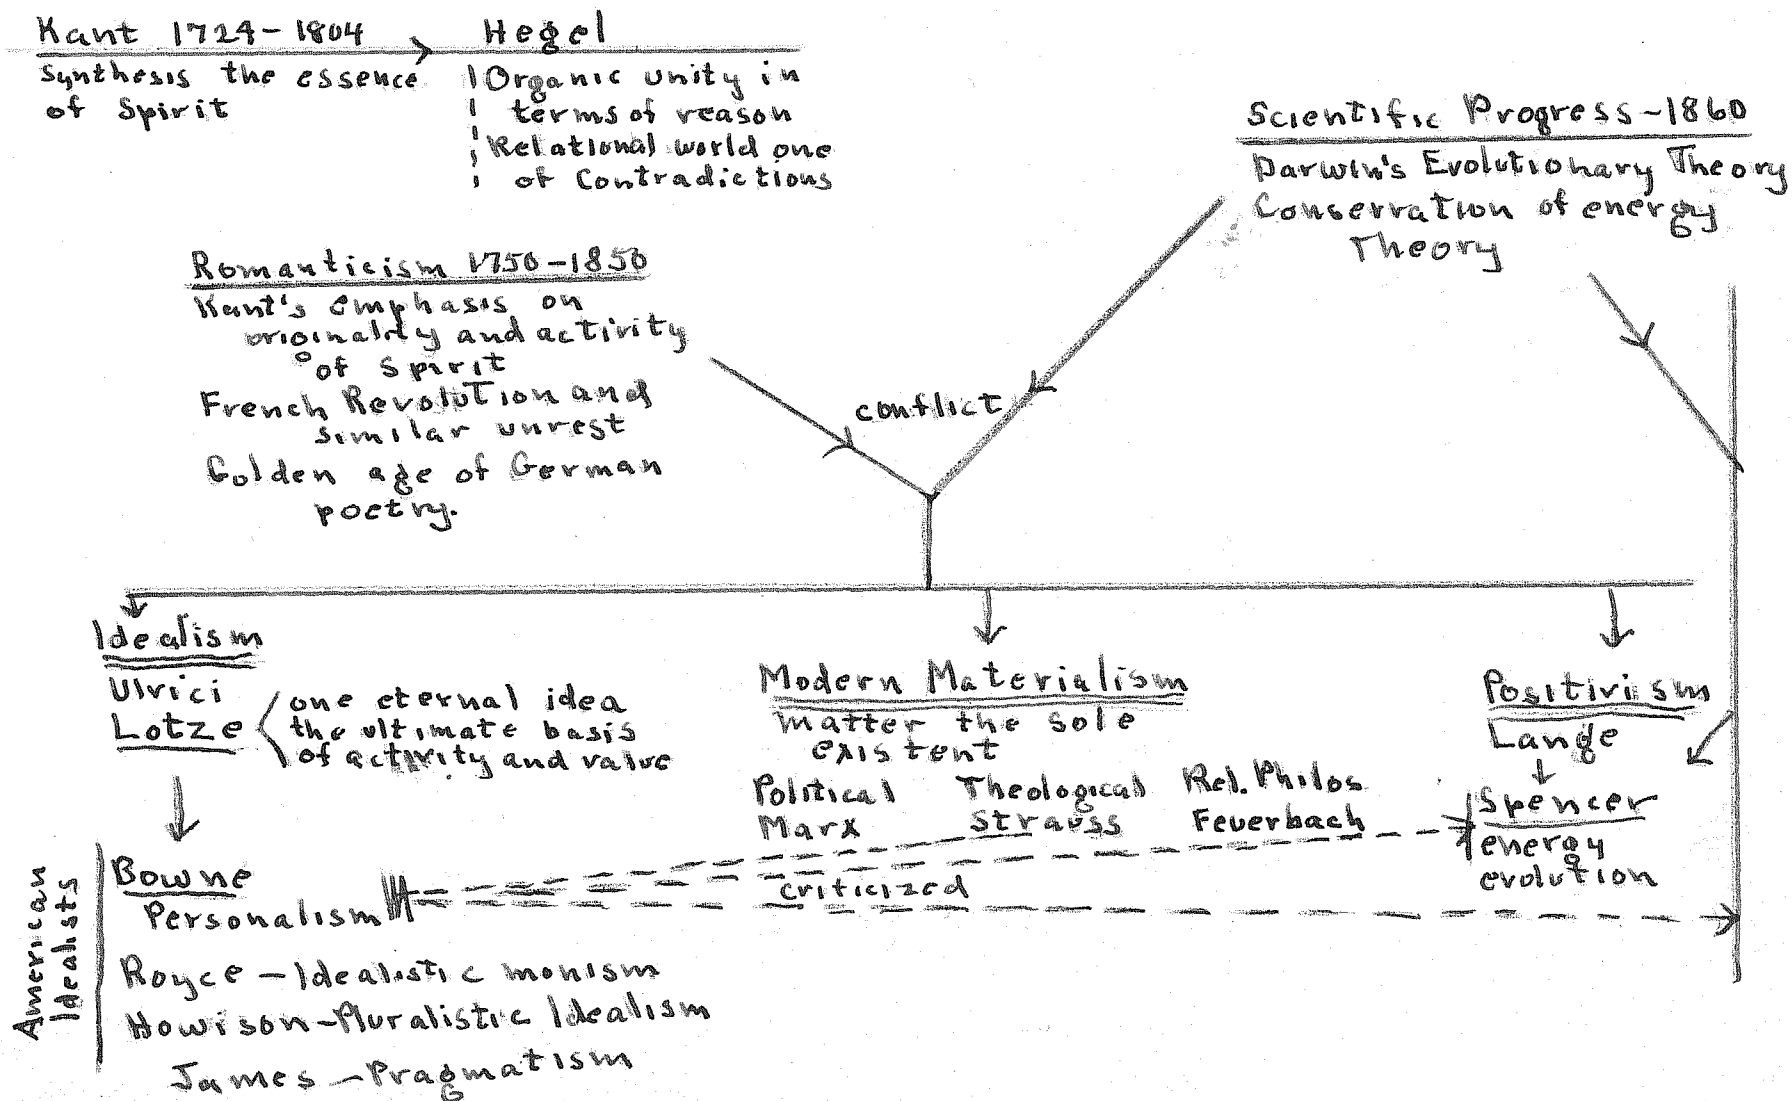 Kant 1724-1804
Synthesis the essence
of Spirit
Hegel
Organic unity in
terms of reason
Relational world one
of Contradictions
Scientific Progress-1860
Darwin's Evolutionary Theory
Conservation of energy
Theory
Romanticism 1750-1850
Kant's emphasis on
originality and activity
of spirit
French Revolution and
similar unrest
Golden age of German
poetry.
conflict
Idealism
Ulrici
Lotze
one eternal idea
the ultimate basis
of activity and value
Modern Materialism
matter the sole
existent
Political Theological Rel. Philos
Marx Strauss Feuerbach
Positivism
Lange
Spencer
energy
evolution
criticized
American
Idealists
Bowne
Personalism
Royce - Idealistic monism
Howison-Pluralistic Idealism
James - Pragmatism